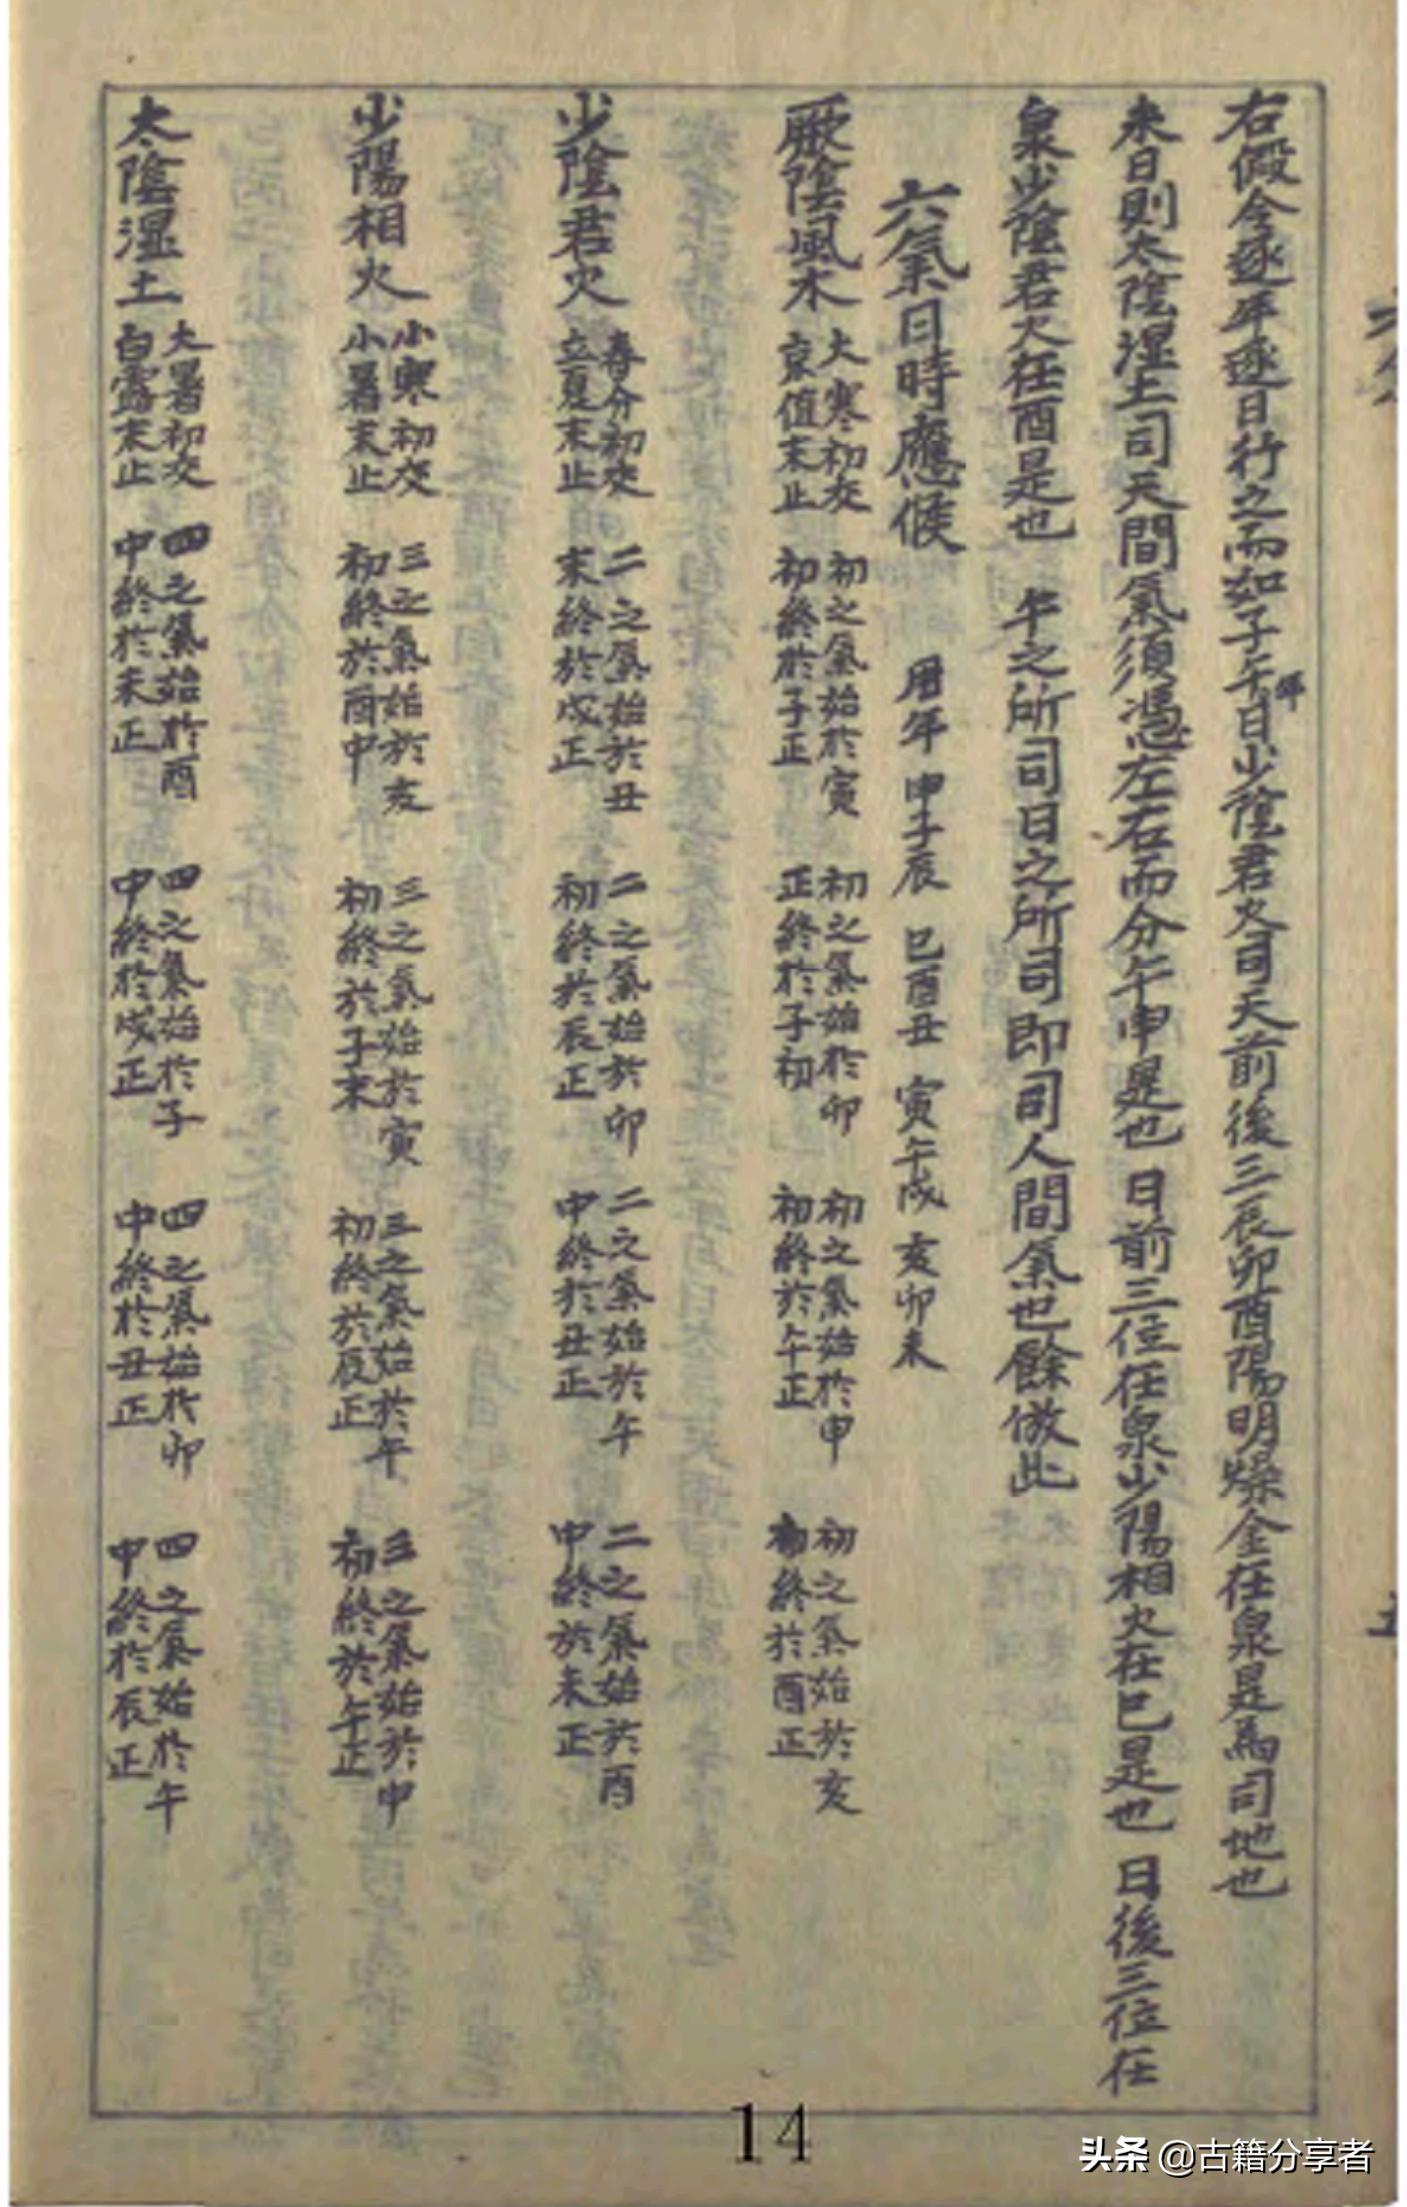 右假令逐年逐日行之而如子午日少陰君火司天前後三辰卯酉陽明燥金在泉是為司地也
年
未日則太陰湿土司天間氣須憑左右而分午申是也 日前三位在泉少陽相火在巳是也 日後三位在
泉少陰君火在酉是也 午之所司日之所司即司人間氣也餘倣此
六氣日時應候 曆年 申子辰 巳酉丑 寅午戌 亥卯未
厥陰風木 大寒初交 初之氣始於寅 初之氣始於卯 初之氣始於申 初之氣始於亥
京值末止 初終於子正 正終於子初 初終於午正 初終於酉正
少陰君火 春分初交 二之氣始於丑 二之氣始於卯 二之氣始於午 二之氣始於酉
立夏末止 末終於戌正 初終於辰正 中終於丑正 中終於未正
少陽相火 小寒初交 三之氣始於亥 三之氣始於寅 三之氣始於午 三之氣始於申
小暑末止 初終於酉中 初終於子末 初終於辰正 初終於午正
太陰湿土 大暑初交 四之氣始於酉 四之氣始於子 四之氣始於卯 四之氣始於午
白露末止 中終於未正 中終於戌正 中終於丑正 中終於辰正
14
头条 @古籍分享者